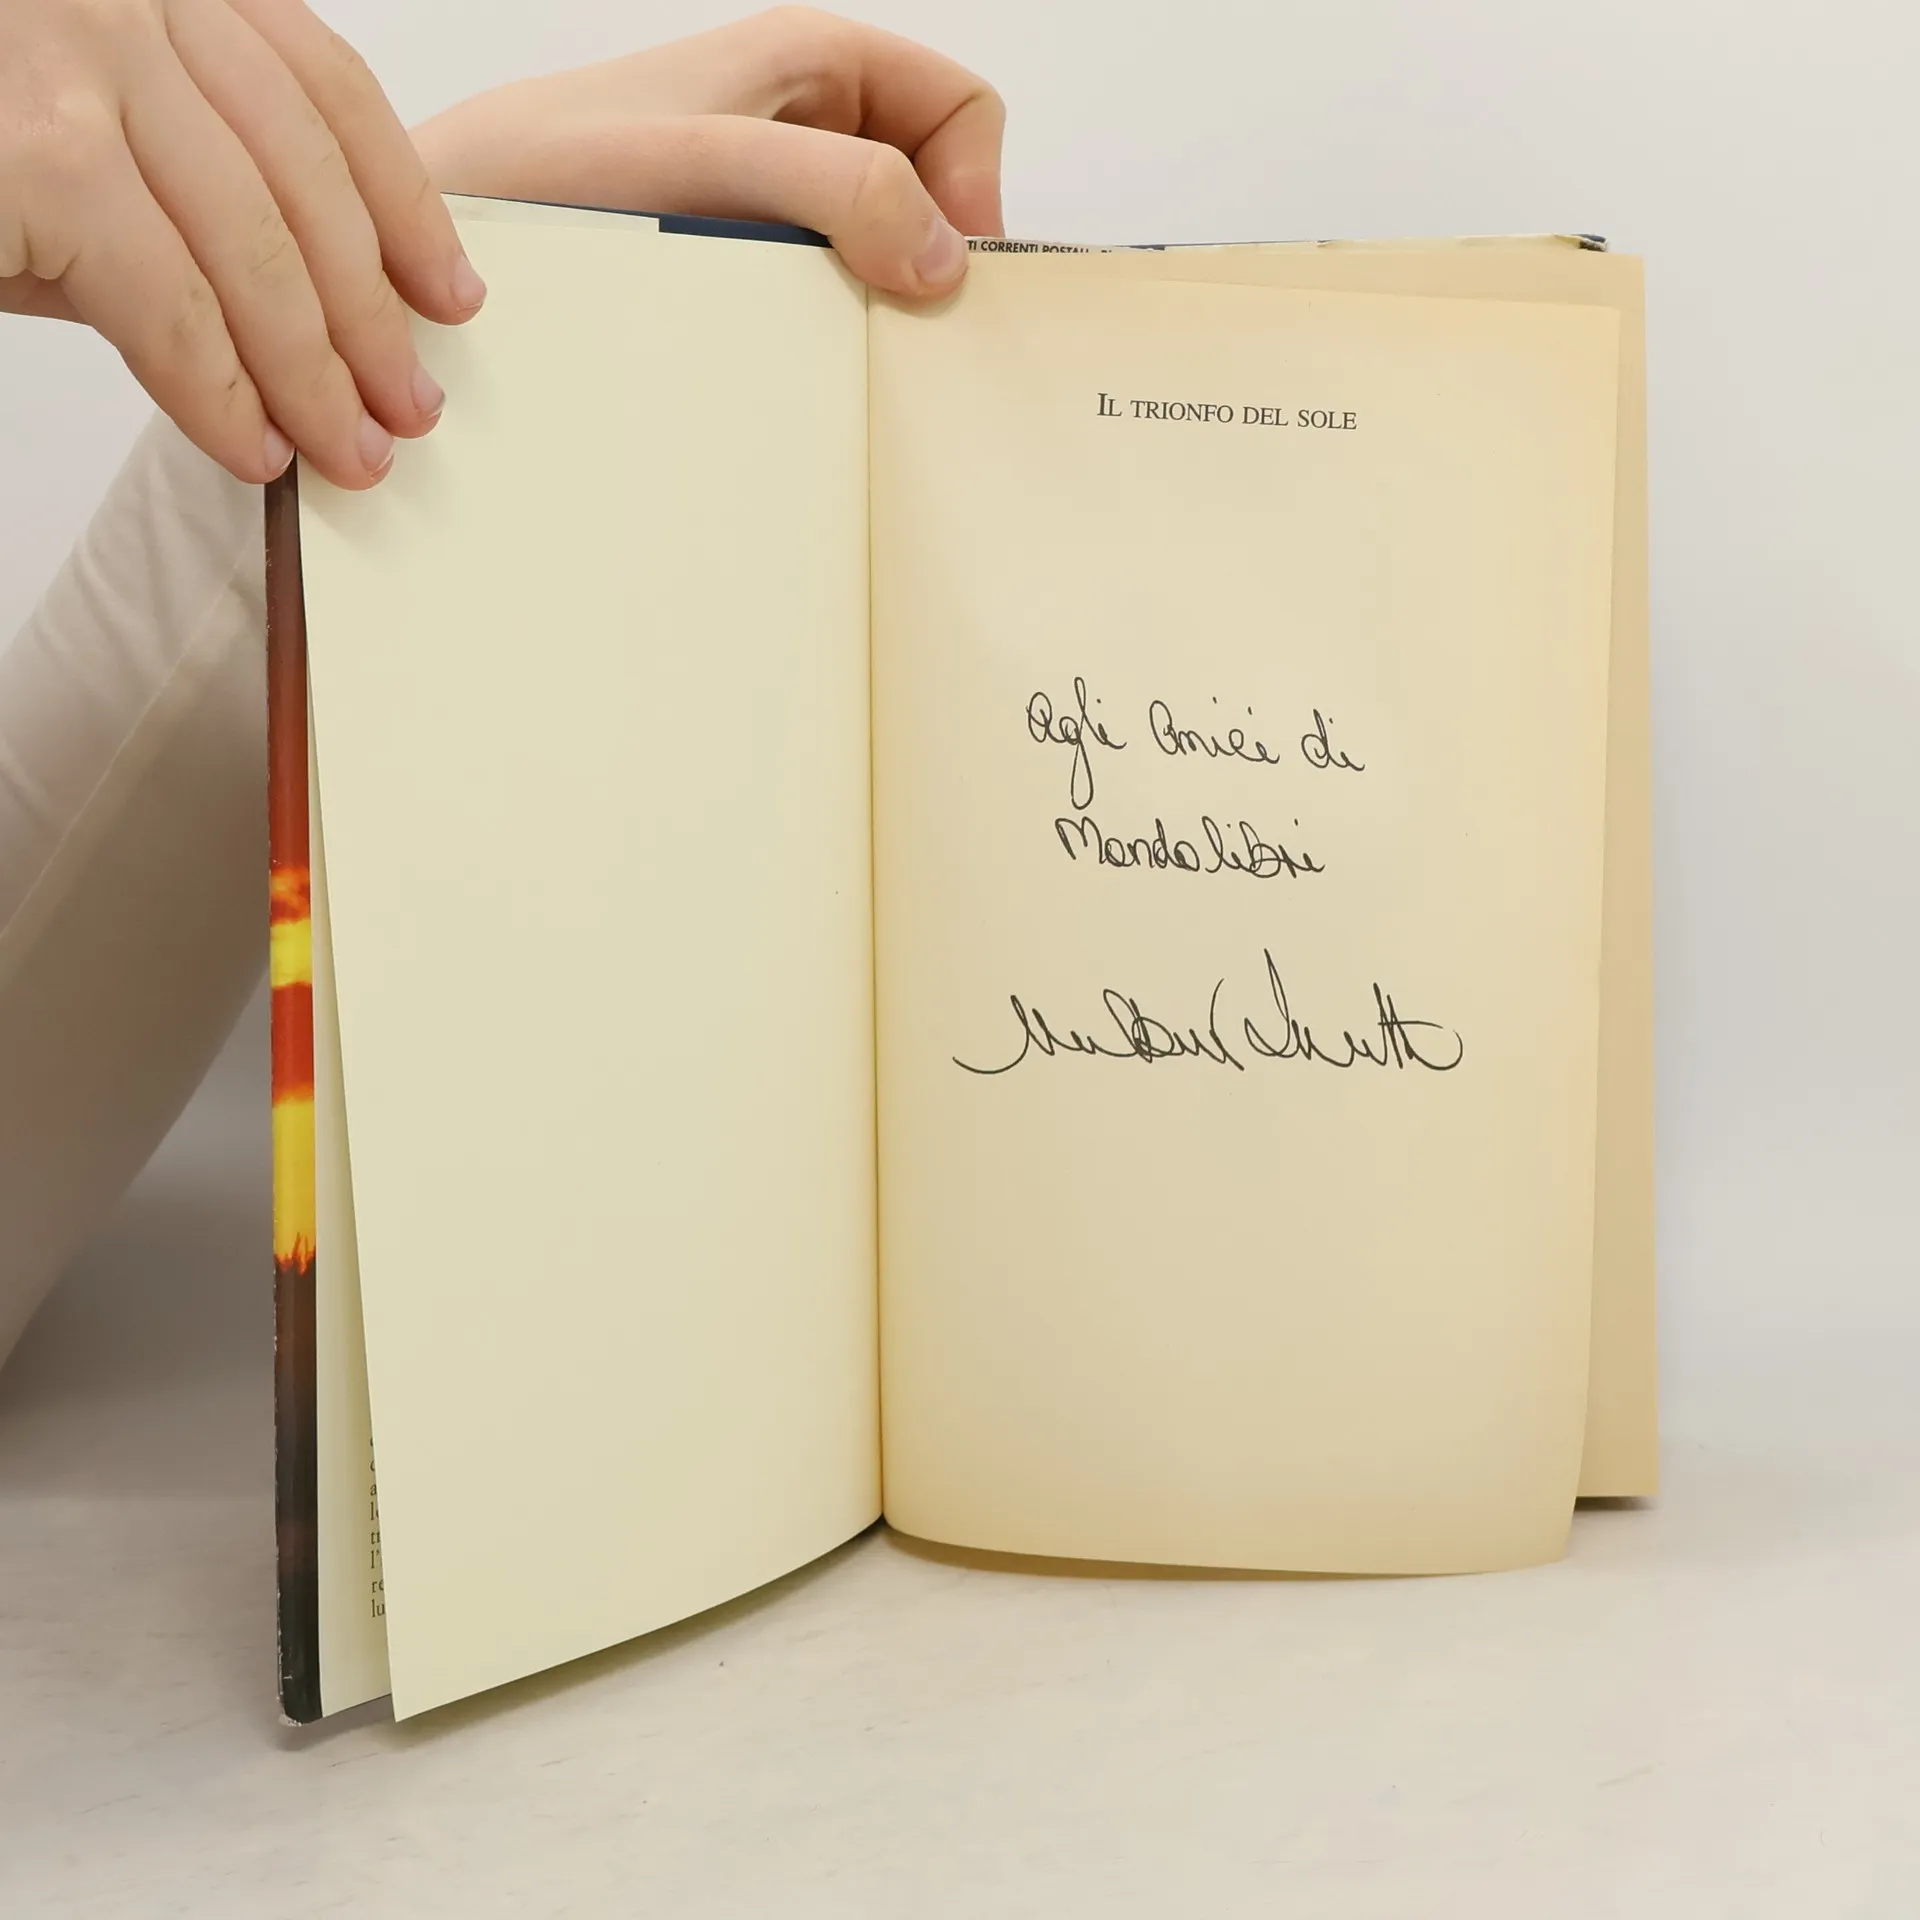 TI CORRENTI POSTALI
IL TRIONFO DEL SOLE
Agli Amici di
Mondolibri
Wilbur Smith
l'
re
lu